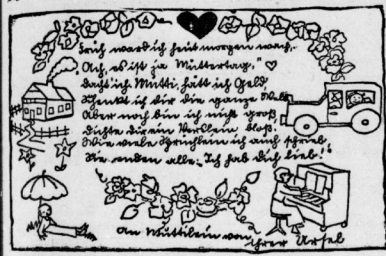 Früh ward ich heut morgen wach,
"Ach, es ist ja Muttertag,"
dacht ich Mutti, hätt ich Geld,
Schenkt ich dir die ganze Welt
Aber noch bin ich nicht groß
Dichte dir ein Verslein bloß.
Wie viele Sprüchlein ich auch schrieb,
Sie enden alle: Ich hab dich lieb!
An Muttilein von ihrer Ursel